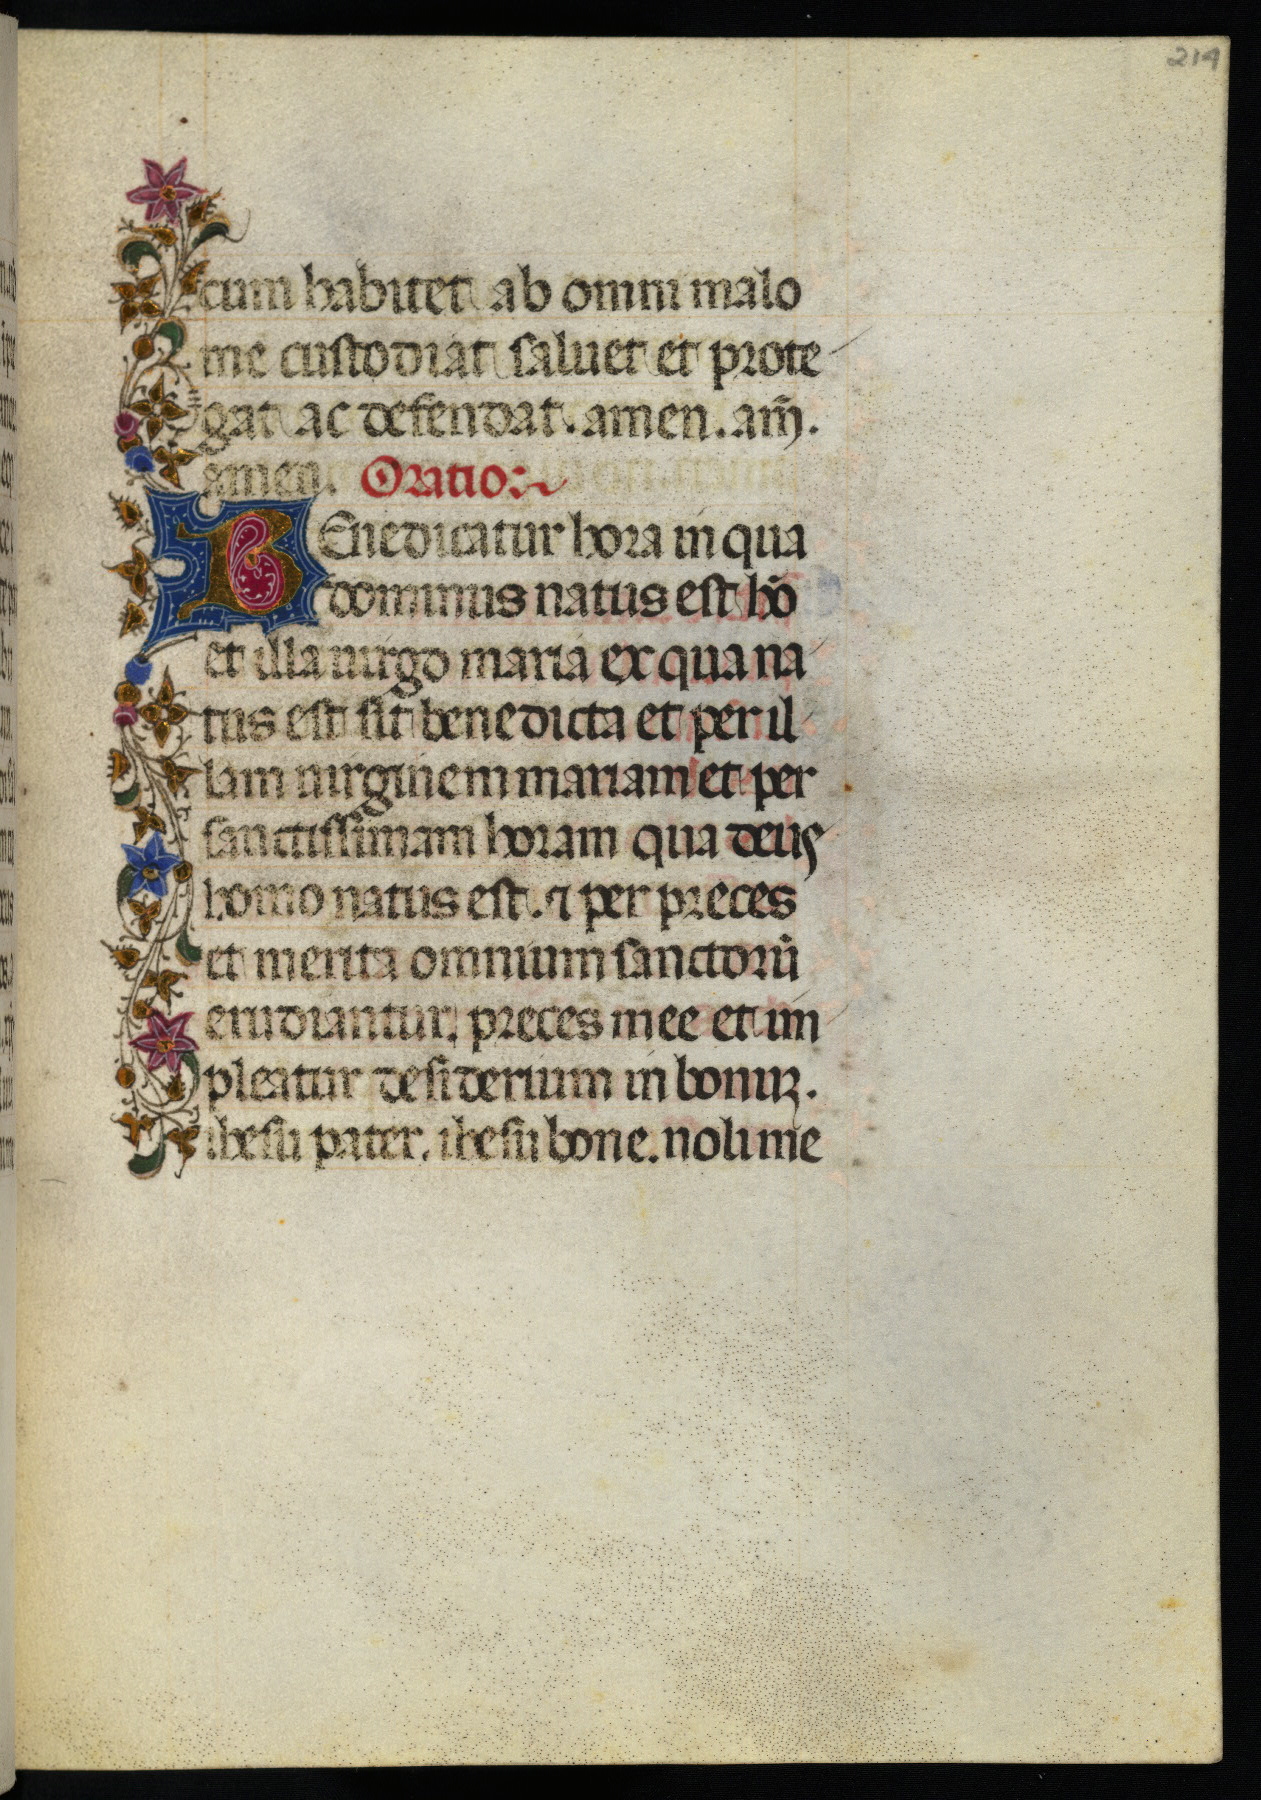 214
cum habitet ab omni malo
me custodiat saluet et prote
gat ac defendat. amen. am̃.
amen. Oratio:~
BEnedicatur hora in qua
dominus natus est hõ
et illa uirgo maria ex qua na
tus est sit benedicta et per il
lam uirginem mariam et per
sanctissimam horam qua deus
homo natus est. ⁊ per preces
et merita omnium sanctorũ
exudiantur. preces mee et im
pleatur desiderium in bonuꝫ.
ihesu pater. ihesu bone. noli me